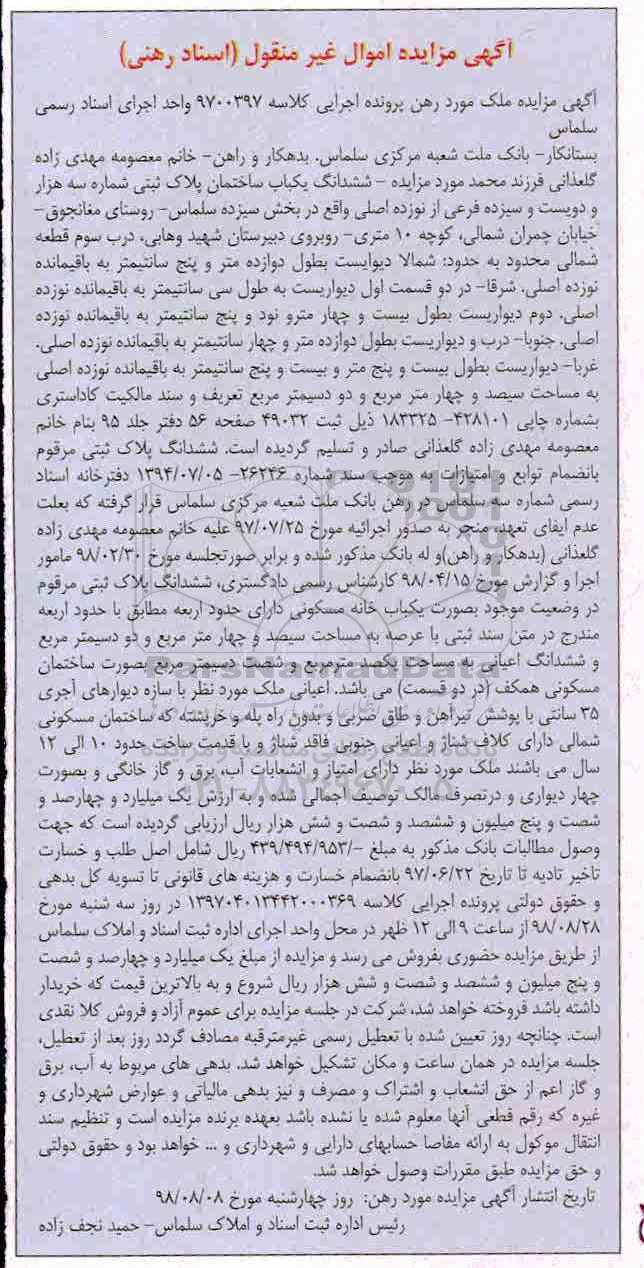 آگهی مزایده اموال غیر منقول (اسناد رهنی)
آگهی مزایده ملک مورد رهن پرونده اجرایی کلاسه ۹۷۰۰۳۹۷ واحد اجرای اسناد رسمی
سلماس
بستانکار- بانک ملت شعبه مرکزی سلماس. بدهکار و راهن- خانم معصومه مهدی زاده
گلعذانی فرزند محمد مورد مزایده – ششدانگ یکباب ساختمان پلاک ثبتی شماره سه هزار
و دویست و سیزده فرعی از نوزده اصلی واقع در بخش سیزده سلماس- روستای مغانجوق-
خیابان چمران شمالی، کوچه ۱۰ متری- روبروی دبیرستان شهید وهابی، درب سوم قطعه
شمالی محدود به حدود: شمالا دیوایست بطول دوازده متر و پنج سانتیمتر به باقیمانده
نوزده اصلی. شرقا- در دو قسمت اول دیواریست به طول سی سانتیمتر به باقیمانده نوزده
اصلی. دوم دیواریست بطول بیست و چهار مترو نود و پنج سانتیمتر به باقیمانده نوزده
اصلی. جنوبا- درب و دیواریست بطول دوازده متر و چهار سانتیمتر به باقیمانده نوزده اصلی.
غربا- دیواریست بطول بیست و پنج متر و بیست و پنج سانتیمتر به باقیمانده نوزده اصلی
به مساحت سیصد و چهار متر مربع و دو دسیمتر مربع تعریف و سند مالکیت کاداستری
بشماره چاپی ۴۲۸۱۰۱- ۱۸۳۳۲۵ ذیل ثبت ۴۹۰۳۲ صفحه ۵۶ دفتر جلد ۹۵ بنام خانم
معصومه مهدی زاده گلعذانی صادر و تسلیم گردیده است. ششدانگ پلاک ثبتی مرقوم
بانضمام توابع و امتیازات به موجب سند شماره ۲۶۲۴۶- ۱۳۹۴/۰۷/۰۵ دفترخانه اسناد
رسمی شماره سه سلماس در رهن بانک ملت شعبه مرکزی سلماس قرار گرفته که بعلت
عدم ایفای تعهد، منجر به صدور اجرائیه مورخ ۹۷/۰۷/۲۵ علیه خانم معصومه مهدی زاده
گلعذانی (بدهکار و راهن)و له بانک مذکور شده و برابر صورتجلسه مورخ ۹۸/۰۲/۳۰ مامور
اجرا و گزارش مورخ ۹۸/۰۴/۱۵ کارشناس رسمی دادگستری، ششدانگ پلاک ثبتی مرقوم
در وضعیت موجود بصورت یکباب خانه مسکونی دارای حدود اربعه مطابق با حدود اربعه
مندرج در متن سند ثبتی با عرصه به مساحت سیصد و چهار متر مربع و دو دسیمتر مربع
و ششدانگ اعیانی به مساحت یکصد مترمربع و شصت دسیمتر مربع بصورت ساختمان
مسکونی همکف (در دو قسمت) می باشد. اعیانی ملک مورد نظر با سازه دیوارهای آجری
۳۵ سانتی با پوشش تیرآهن و طاق ضربی و بدون راه پله و خرپشته که ساختمان مسکونی
شمالی دارای کلاف شناژ و اعیانی جنوبی فاقد شناژ و با قدمت ساخت حدود ۱۰ الی ۱۲
سال می باشند ملک مورد نظر دارای امتیاز و انشعابات آب، برق و گاز خانگی و بصورت
چهار دیواری و درتصرف مالک توصیف اجمالی شده و به ارزش یک میلیارد و چهارصد و
شصت و پنج میلیون و ششصد و شصت و شش هزار ریال ارزیابی گردیده است که جهت
وصول مطالبات بانک مذکور به مبلغ -/۴۳۹/۴۹۴/۹۵۳ ریال شامل اصل طلب و خسارت
تاخیر تادیه تا تاریخ ۹۷/۰۶/۲۲ بانضمام خسارت و هزینه های قانونی تا تسویه کل بدهی
و حقوق دولتی پرونده اجرایی کلاسه ۱۳۹۷۰۴۰۱۳۴۴۲۰۰۰۳۶۹ در روز سه شنبه مورخ
۹۸/۰۸/۲۸ از ساعت ۹ الی ۱۲ ظهر در محل واحد اجرای اداره ثبت اسناد و املاک سلماس
از طریق مزایده حضوری بفروش می رسد و مزایده از مبلغ یک میلیارد و چهارصد و شصت
و پنج میلیون و ششصد و شصت و شش هزار ریال شروع و به بالاترین قیمت که خریدار
داشته باشد فروخته خواهد شد، شرکت در جلسه مزایده برای عموم آزاد و فروش کلا نقدی
است. چنانچه روز تعیین شده با تعطیل رسمی غیرمترقبه مصادف گردد روز بعد از تعطیل،
جلسه مزایده در همان ساعت و مکان تشکیل خواهد شد. بدهی های مربوط به آب، برق
و گاز اعم از حق انشعاب و اشتراک و مصرف و نیز بدهی مالیاتی و عوارض شهرداری و
غیره که رقم قطعی آنها معلوم شده یا نشده باشد بعهده برنده مزایده است و تنظیم سند
انتقال موکول به ارائه مفاصا حسابهای دارایی و شهرداری و ... خواهد بود و حقوق دولتی
و حق مزایده طبق مقررات وصول خواهد شد.
تاریخ انتشار آگهی مزایده مورد رهن: روز چهارشنبه مورخ ۹۸/۰۸/۰۸
رئیس اداره ثبت اسناد و املاک سلماس- حمید نجف زاده
ParsNamadData